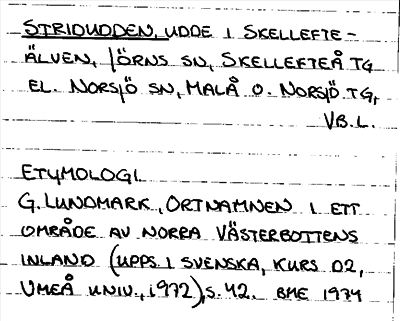 STRIDUDDEN, UDDE I SKELLEFTE-
ÄLVEN, JÖRNS SN, SKELLEFTEÅ TG
EL. NORSJÖ SN, MALÅ O. NORSJÖ TG,
VB.L.
ETYMOLOGI
G. LUNDMARK, ORTNAMNEN I ETT
OMRÅDE AV NORRA VÄSTERBOTTENS
INLAND (UPPS. I SVENSKA, KURS D2,
UMEÅ UNIV., 1972), S. 42. BME 1974